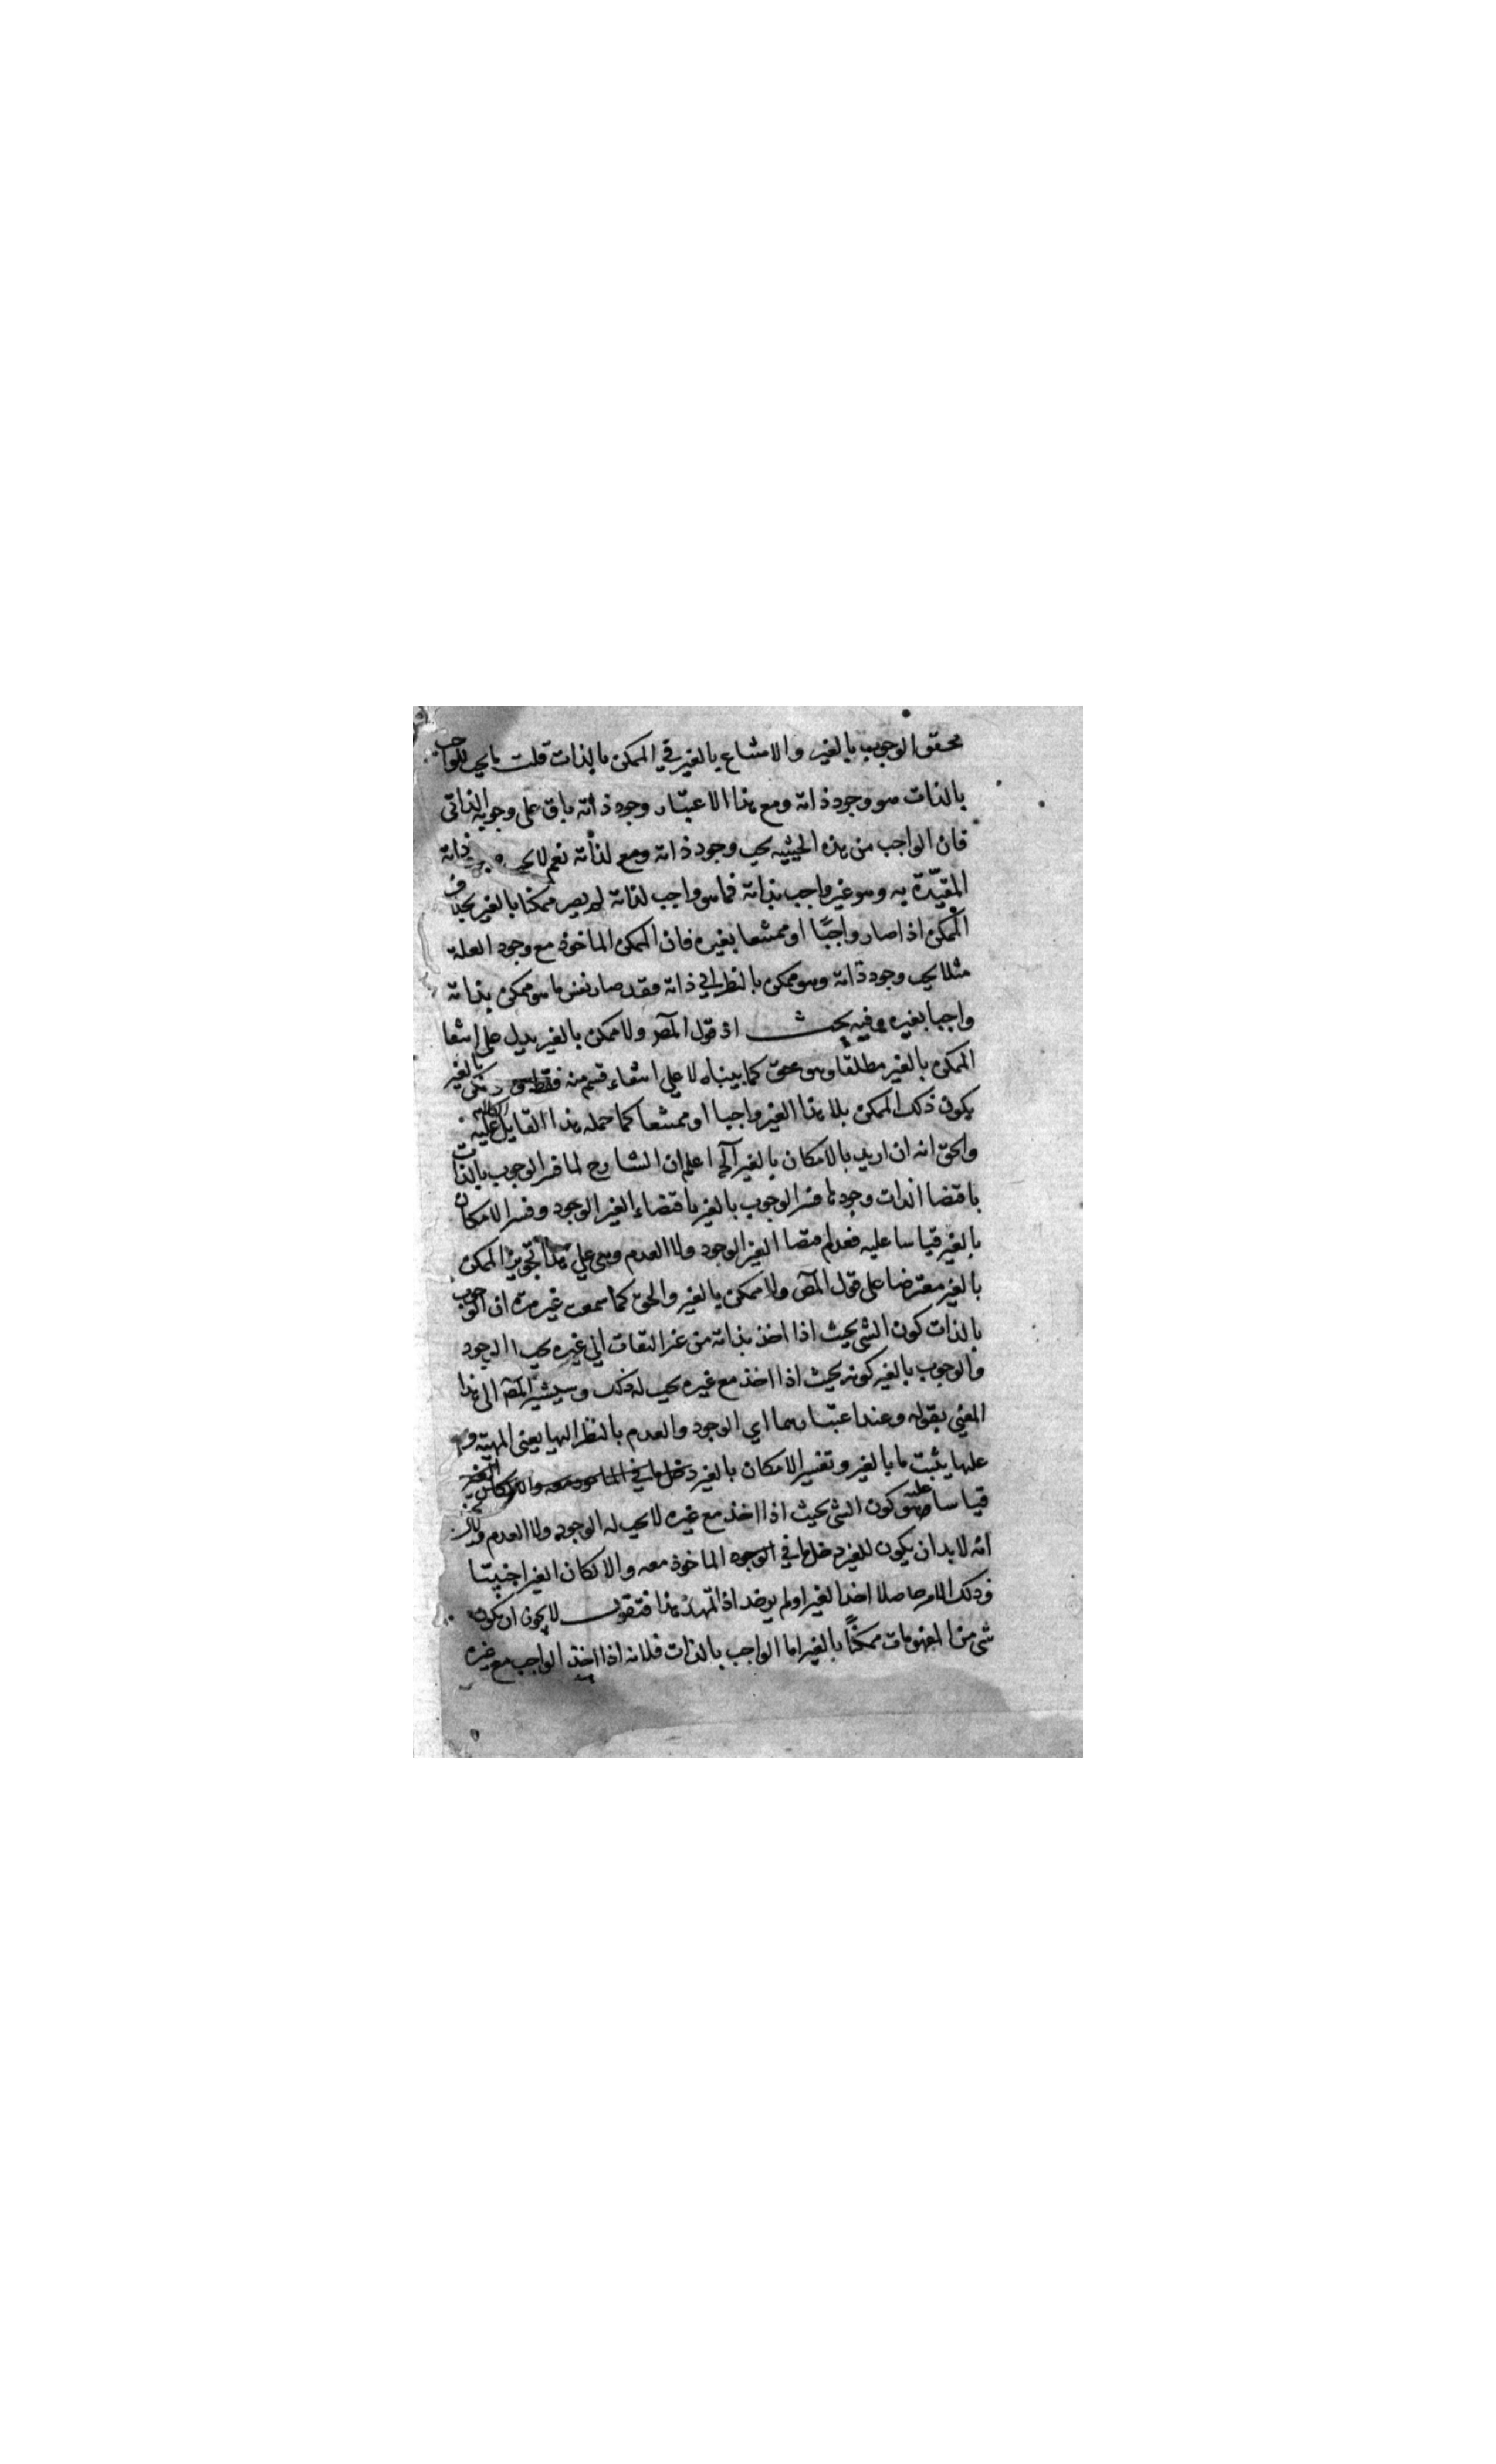 محقق الوجوب بالغير والامتناع بالغير في الممكن بالذات قلت ما يجب للواجب
بالذات هو وجود ذاته ومع هذا الاعتبار وجود ذاته باق على وجوبه الذاتي
فان الواجب من هذه الحيثية يجب وجود ذاته ومع لذاته نعم لا يجب ذاته
المقيّدة به وهو غير واجب بذاته فما هو واجب لذاته لم يصر ممكنا بالغير بخلاف
الممكن اذا صار واجبًا او ممتنعا بغيره فان الممكن الماخوذ مع وجود العلة
مثلا يجب وجود ذاته وهو ممكن بالنظر الي ذاته فقد صار نفس ما هو ممكن بذاته
واجبا بغيره وفيه بحث اذ قول المص ولا ممكن بالغير يدل على انتفا
الممكن بالغير مطلقا وهو محقق كما بيناه لا على انتفاء قسم منه فقط بالغير
يكون ذلك الممكن بلا هذا الغير واجبا او ممتنعا كما حمله هذا القايل الكلام عليه
والحق انه ان اريد بالامكان بالغير آلخ اعلم ان الشارح لما فسر الوجوب بالذات
باقتضا الذات وجودها فسر الوجوب بالغير باقتضاء الغير الوجود وفسر الامكان
بالغير قياسا عليه بعدم اقتضا الغير الوجود ولا العدم وبنى على هذا تجويز الممكن
بالغير معترضا على قول المص ولا ممكن بالغير والحق كما سمعت غير مرة ان الوجوب
بالذات كون الشي بحيث اذا اخذ بذاته من غير التفات الي غيره يجب الوجود
والوجوب بالغير كونه بحيث اذا اخذ مع غيره يجب له ذلك وسيشير المص الى هذا
المعني بقوله وعند اعتبارهما اي الوجود والعدم بالنظر اليها يعني المهية و
علتها يثبت ما بالغير وتفسير الامكان بالغير
قياسا عليه هو كون الشي بحيث اذا اخذ مع غيره لا يجب له الوجود ولا العدم
انه لا بد ان يكون للغير دخل ما في الوجود الماخوذ معه والا لكان الغير اجنبيّا
وذلك الامر حاصلا اخذ الغير او لم يوخذ اذا تمهد هذا فنقول لا يجوز ان يكون
شي من المفهومات ممكنًا بالغير اما الواجب بالذات فلانه اذا اخذ الواجب مع غيره